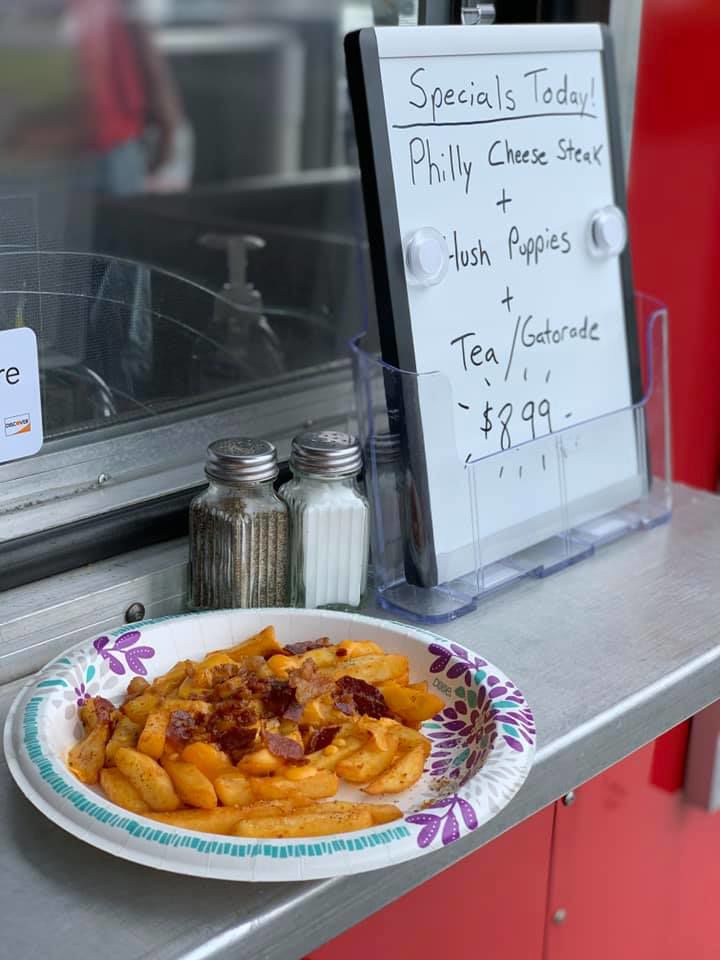 Specials Today!
Philly Cheese Steak
+
Hush Puppies
+
Tea/Gatorade
$8.99
re
DISCOVER